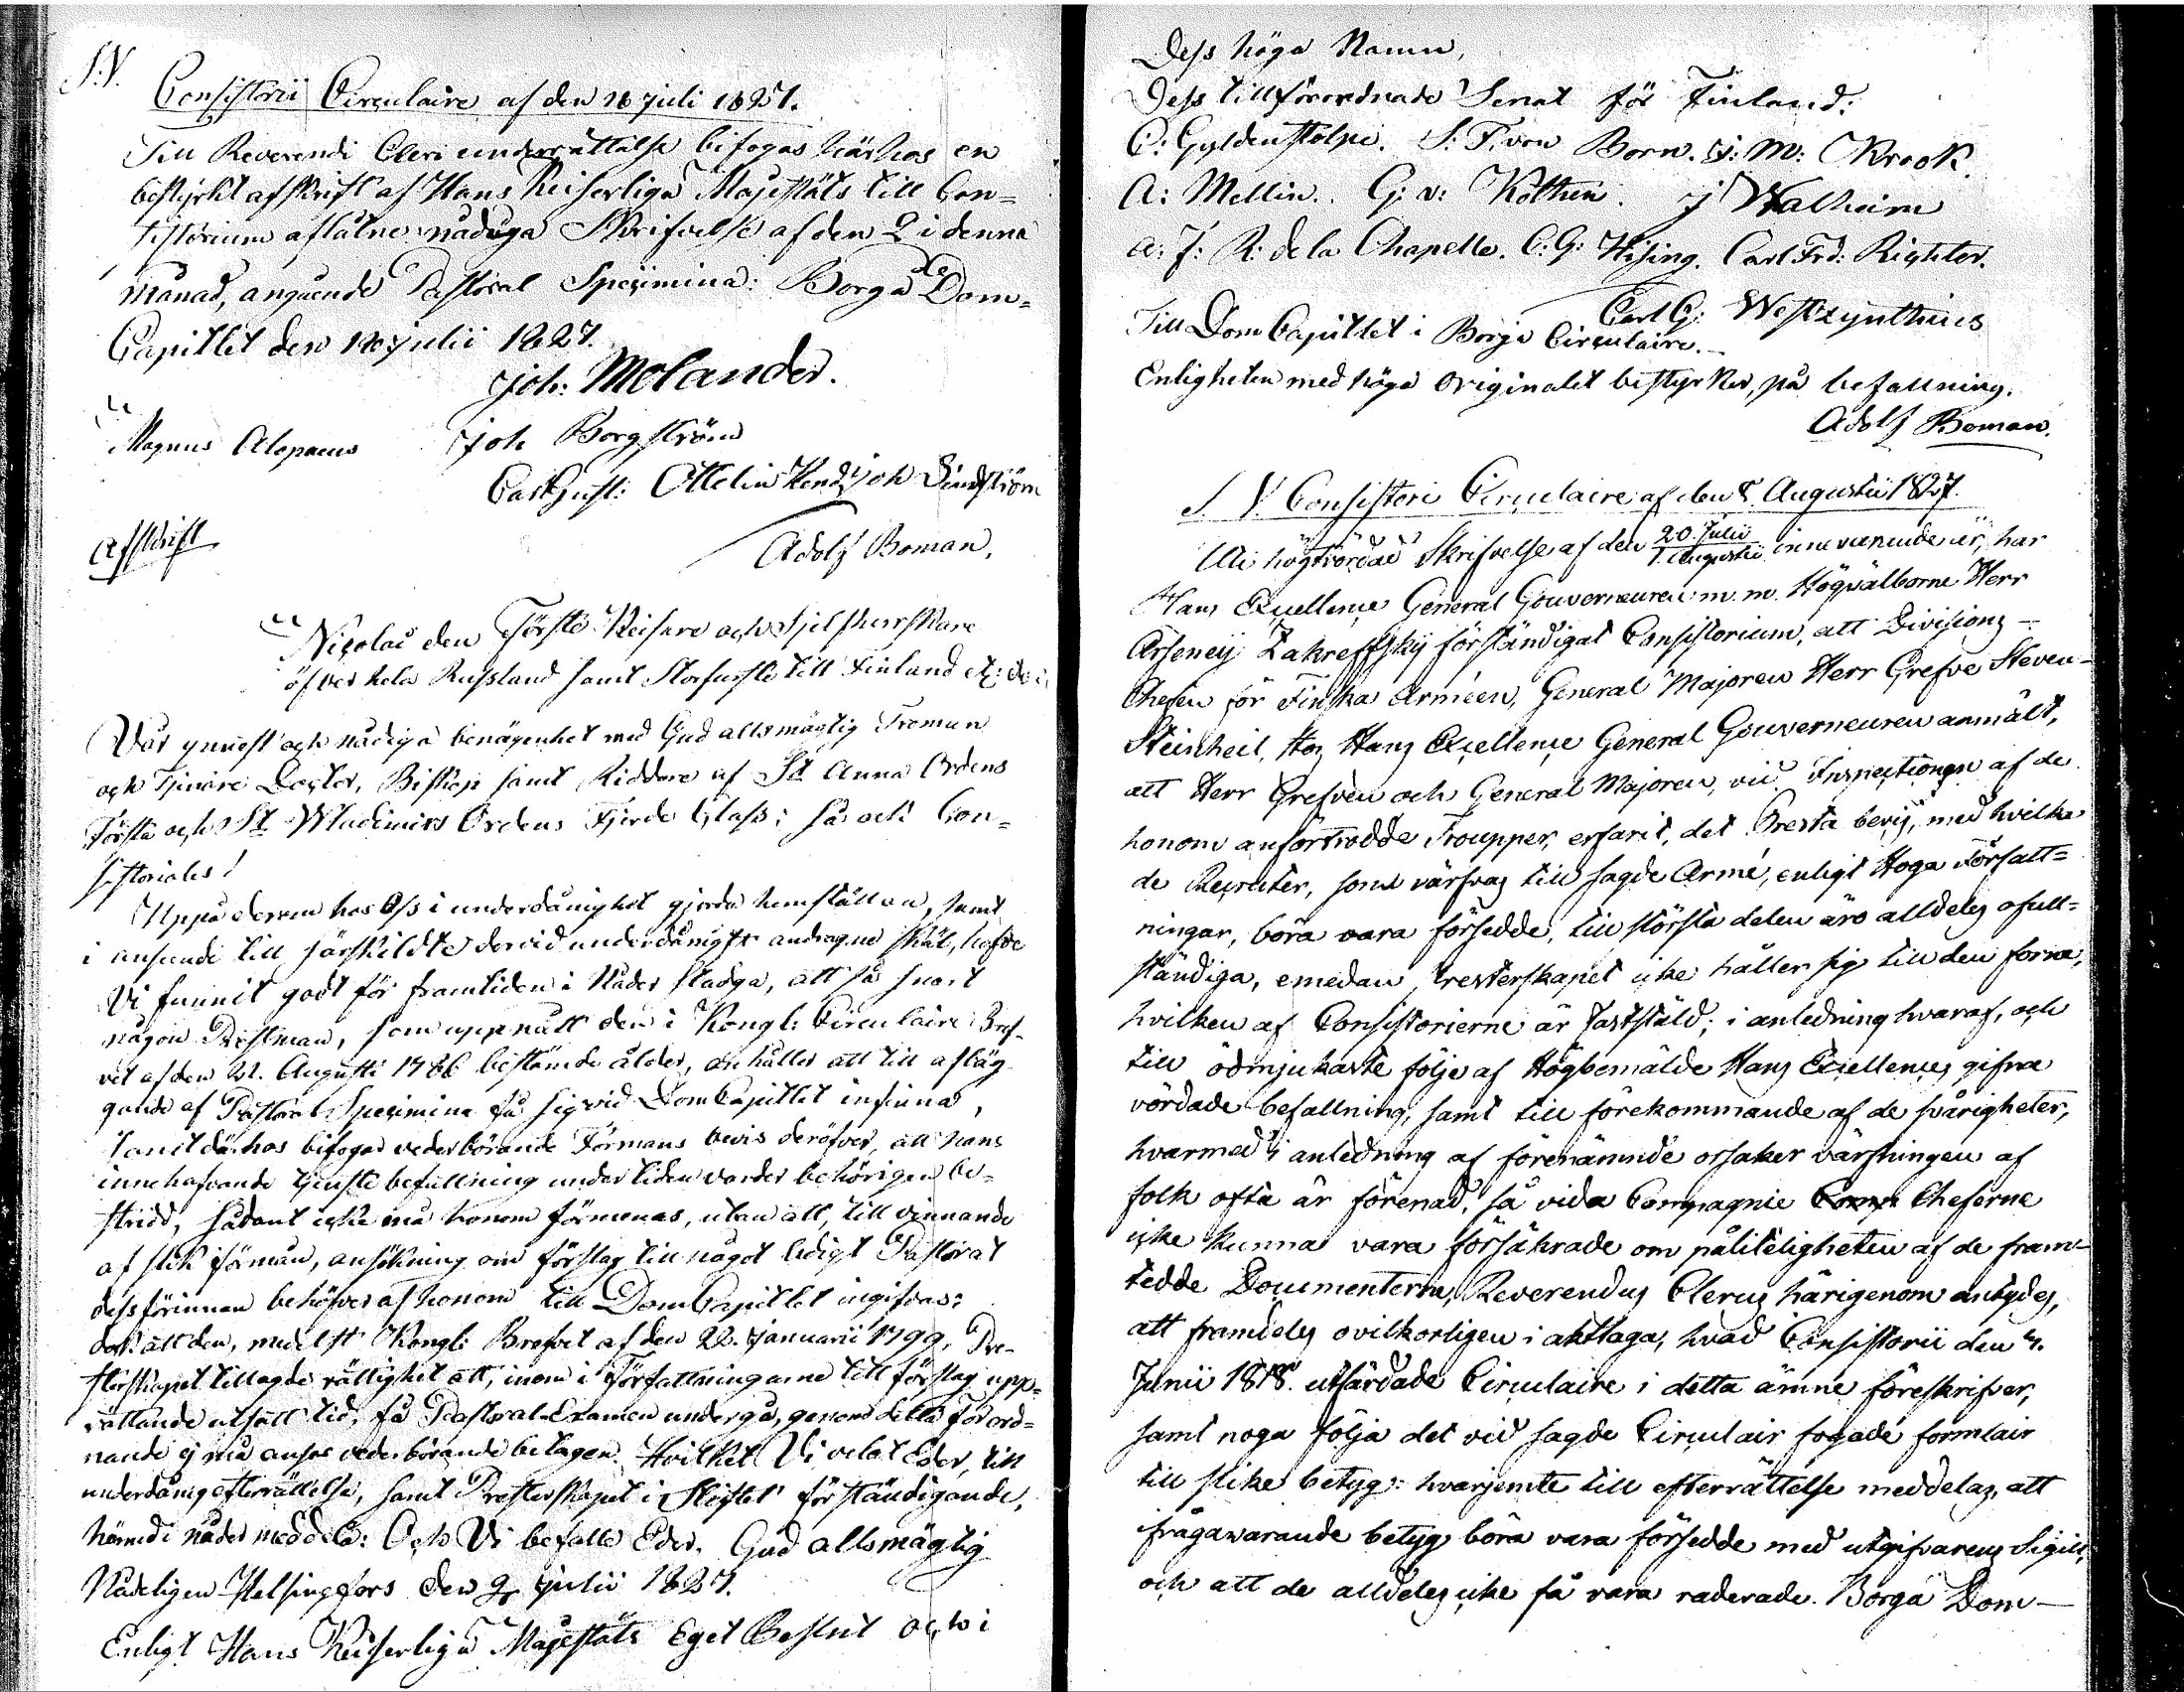 S:V.
Consistorii Circulaire af den 18 juli 1827.
Till Reverendi Cleri underrättelse bifogas härhos en
bestyrkt afskrift af Hans Keiserliga Majestäts till Con=
sistorium aflåtne nådiga Skrifvelse af den 2 i denna
månad, angående Pastoral Specimina: Borgå Dom=
Capitlet den 18 julii 1827.
Joh: Molander.
Magnus Alopaeus Joh Borgström
Carl Gust: Ottelin Joh Lindström
Adolf Boman.
Afskrift
Nicolai den Förste Keisare och Sjelfherrskare
öfver hela Russland samt Storfurste till Finland etc: etc:
Vår ynnest och nådiga benägenhet med Gud allsmägtig Tromun
och Tjenare Doctor, Biskop samt Riddare af St Anna Ordens
Första och St Wladimirs Ordens Fjerde Class; så ock Con=
sistoriales!
Uppå derom hos Oss i underdånighet gjorda hemställan, samt
i anseende till särskildte dervid underdånigst andragne skäl, hafve
Vi funnit godt för framtiden i Nåder stadga, att så snart
någon Prestman, som uppnått den i Kongl: Circulaire Bref-
vet af den 21. Augusti 1786 bestämde ålder, anhåller att till afläg
gande af Pastoral Specimina få sig vid DomCapitlet infinna,
samt därhos bifogar vederbörande Förmans bevis deröfver, att hans
innehafvande tjenstebefattning under tiden varder behörigen be=
stridd, sådant icke må honom förmenas, utan att, till vinnande
af slik förmån, ansökning om förslag till något ledigt Pastorat
dessförinnan behöfver af honom till DomCapitlet ingifvas;
dock att den, medelst Kongl: Brefvet af den 22. Januarii 1799, Pre-
sterskapet tillagde rättighet att, inom i Författningarne till förslag upp=
rättande utsatt tid, få Pastoral-Examen undergå, genom detta Förord=
nande ej må anses vederbörande betagen. Hvilket Vi velat Eder, till
underdånig efterrättelse, samt Presterskapet i Stiftet förständigande,
härmed i nåder meddela: Och Vi befalle Eder. Gud allsmägtig
Nådeligen Helsingfors den 2 julii 1827.
Enligt Hans Keiserliga Majestäts Eget Beslut och i
Dess höga Namn,
Dess tillförordnade Senat för Finland:
C: Gyldenstolpe. S: F: von Born. J: M: Krook.
A: Mellin. G: v: Kothen. J Walheim
A: F: R: de la Chapelle. C: G: Hising. Carl Frd: Richter.
Carl G: Westzynthius
Till Dom Capitlet i Borgå Circulaire.
Enligheten med höga originalet bestyrker, på befallning.
Adolf Boman.
S. V. Consistori Circulaire af den 8. Augustii 1827.
Uti högtvördad Skrifvelse af den 20. Julii / 1. Augustii innevarande år, har
Hans Excellence General Gouverneuren m. m. Högvälborne Herr
Arseney Zakreffsky förständigat Consistorium, att Divisions-
Chefen för Finska Armeen, General Majoren Herr Grefve Steven-
Steinheil, hos Hans Excellence General Gouverneuren anmält,
att Herr Grefven och General Majoren, vid Inspectionen af de
honom anförtrodde Troupper, erfarit, det Presta bevis, med hvilka
de Recruter, som värfvas till sagde Armé, enligt Höga Författ=
ningar, böra vara försedde, till största delen äro alldeles ofull=
ständiga, emedan Presterskapet icke håller sig till den forme,
hvilken af Consistorierne är fastställd; i anledning hvaraf, och
till ödmjukaste följe af Högbemälde Hans Excellences gifna
vördade befallning, samt till förekommande af de svårigheter,
hvarmed i anledning af förenämnde orsaker värfningen af
folk ofta är förenad, så vida Compagnie Cheferne
icke kunna vara försäkrade om pålitligheten af de fram-
tedde Documenterne, Reverendus Clerus härigenom antydes,
att framdeles ovilkorligen i akttaga, hvad Consistorii den 4.
Junii 1818. utfärdade Circulaire i detta ämne föreskrifver,
samt noga följa det vid sagde Circulair fogade formlair
till slike betyg: hvarjemte till efterrättelse meddelas, att
ifrågavarande betyg böra vara försedde med utgifvarens Sigill,
och att de alldeles icke få vara raderade. Borgå Dom-